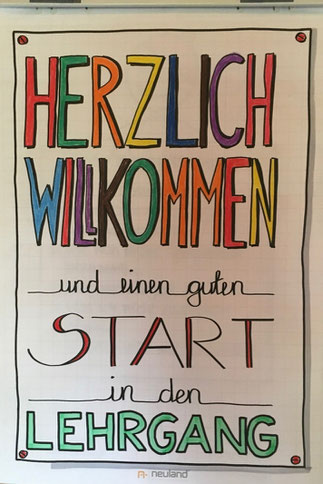 HERZLICH
WILLKOMMEN
und einen guten
START
in den
LEHRGANG
neuland